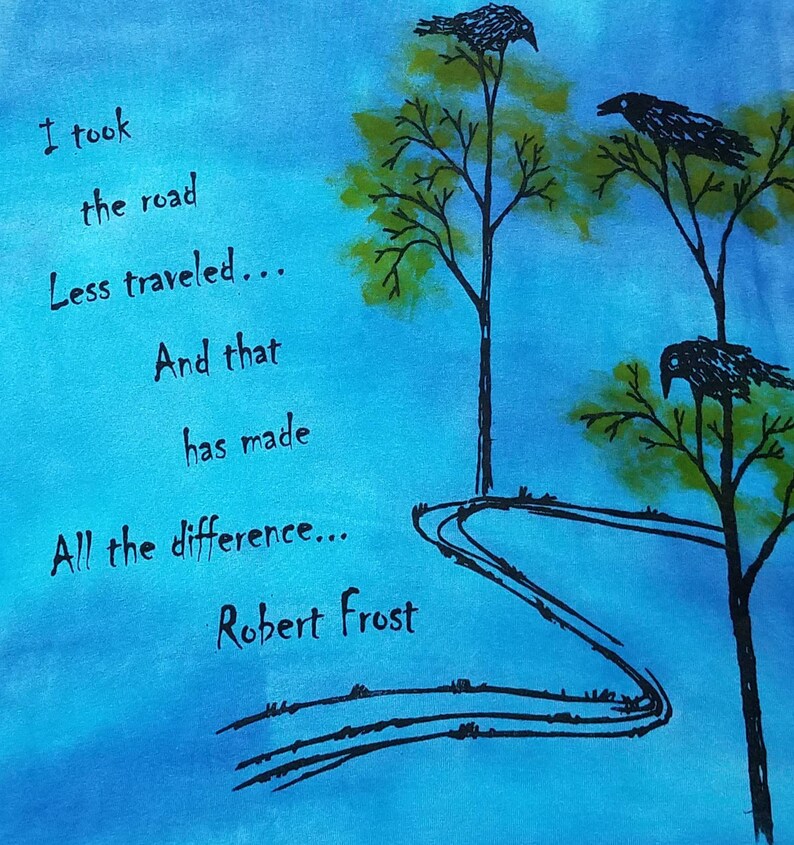 I took
the road
Less traveled...
And that
has made
All the difference...
Robert Frost